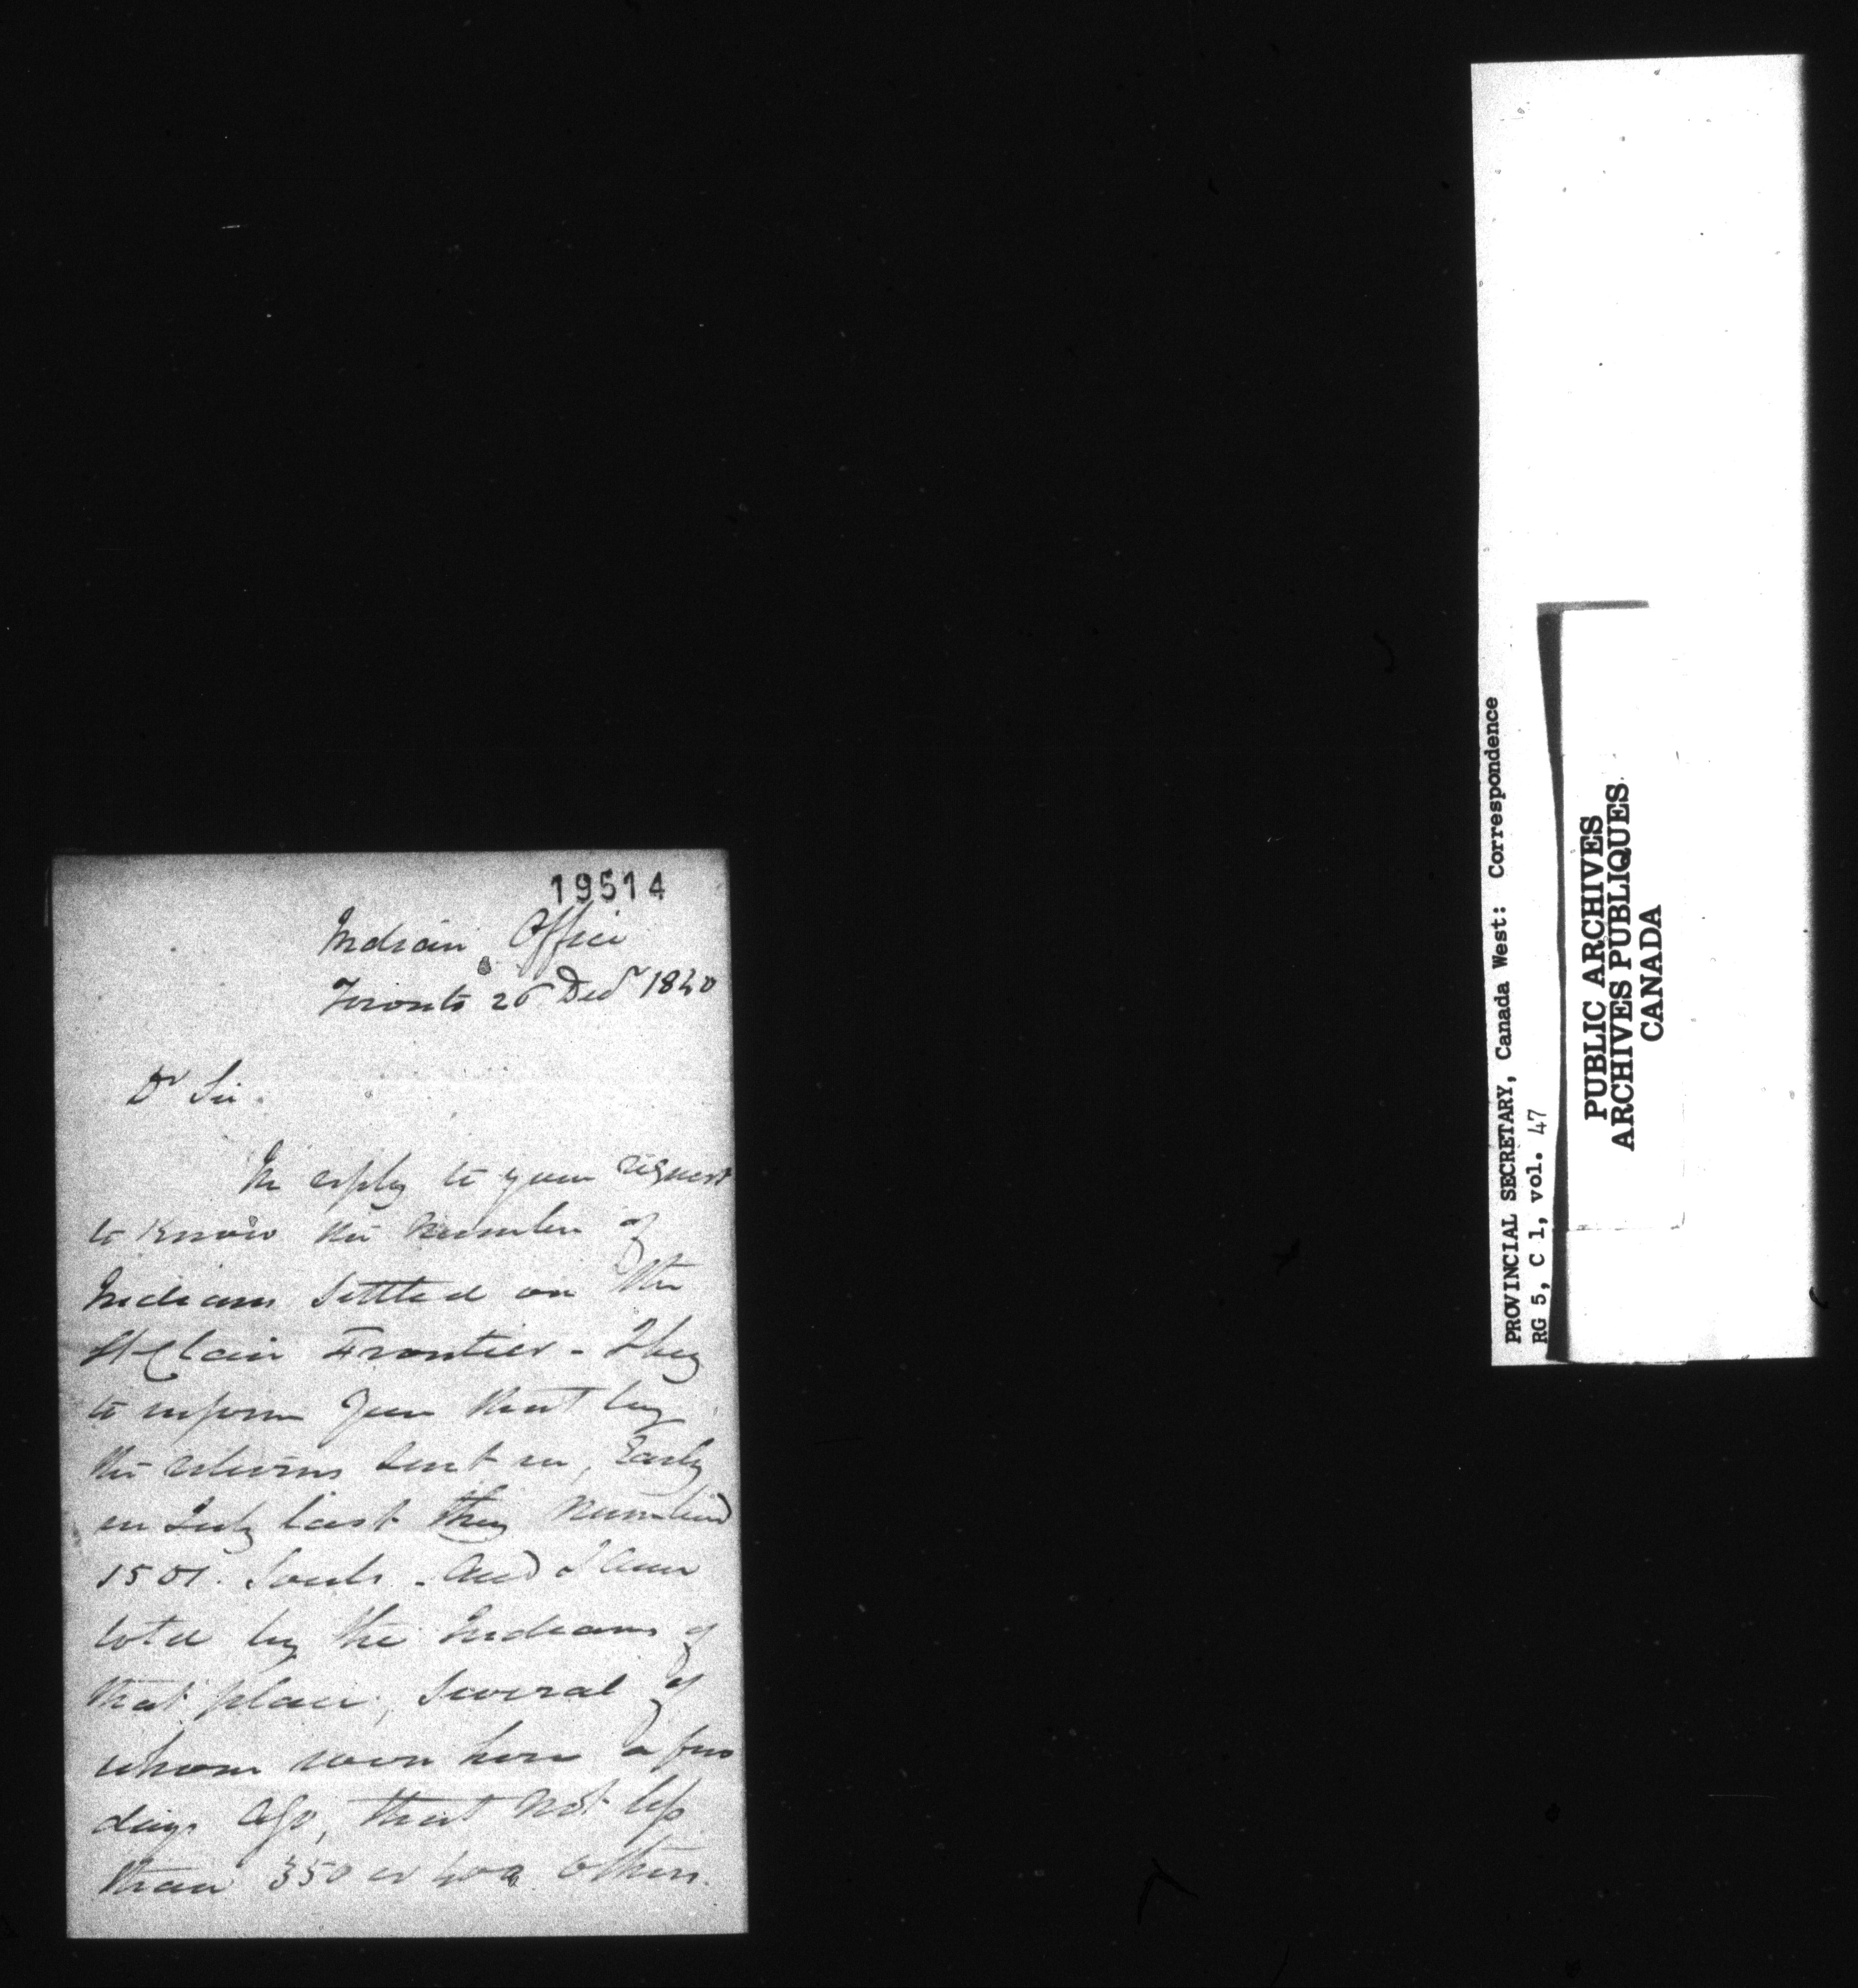 19514
Indian Office
Toronto 26 Decr 1840
Dr Sir.
In reply to your request
to know the number of
Indians settled on the
St Clair Frontier - I beg
to inform you that by
the returns sent in, Early
in July last they numbered
1501. Souls - And I am
told by the Indians of
that place, several of
whom were here a few
days ago, that not less
than 350 or 400 others.
PROVINCIAL SECRETARY, Canada West: Correspondence
RG 5, C 1, vol. 47
PUBLIC ARCHIVES
ARCHIVES PUBLIQUES
CANADA